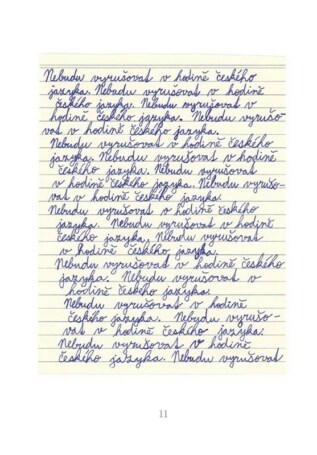 Nebudu vyrušovat v hodině českého
jazyka. Nebudu vyrušovat v hodině
českého jazyka. Nebudu vyrušovat v
hodině českého jazyka. Nebudu vyrušo-
vat v hodině českého jazyka.
Nebudu vyrušovat v hodině českého
jazyka. Nebudu vyrušovat v hodině
českého jazyka. Nebudu vyrušovat
v hodině českého jazyka. Nebudu vyrušo-
vat v hodině českého jazyka.
Nebudu vyrušovat v hodině českého
jazyka. Nebudu vyrušovat v hodině
českého jazyka. Nebudu vyrušovat
v hodině českého jazyka.
Nebudu vyrušovat v hodině českého
jazyka. Nebudu vyrušovat v
hodině českého jazyka.
Nebudu vyrušovat v hodině
českého jazyka. Nebudu vyrušo-
vat v hodině českého jazyka.
Nebudu vyrušovat v hodině
českého jazyka. Nebudu vyrušovat
11